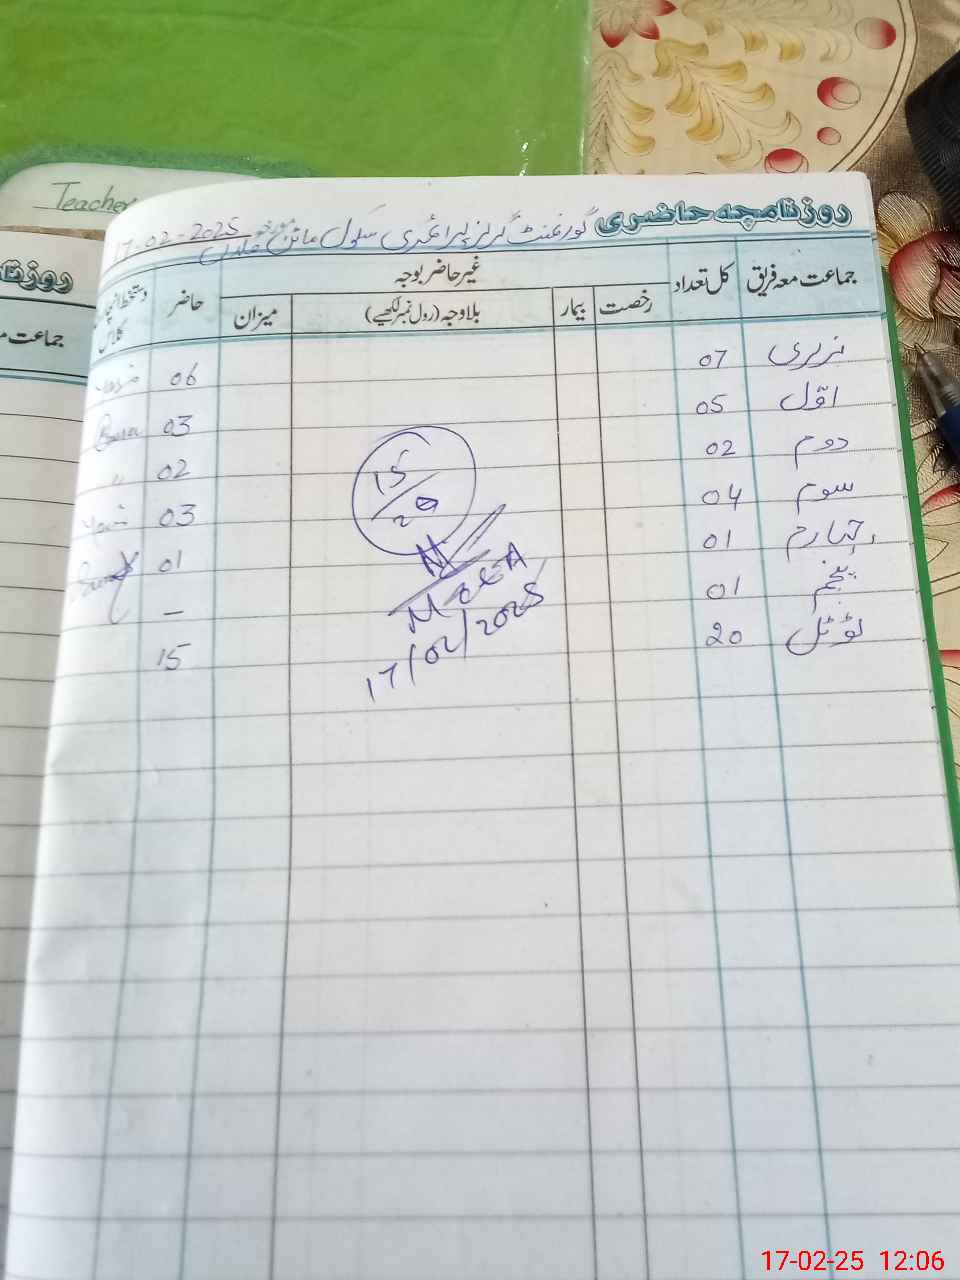 Teacher
روزنامچہ حاضری گورنمنٹ گرلز پرائمری سکول مورخہ 17-02-2025
جماعت معہ فریق کل تعداد غیر حاضر بوجہ حاضر دستخط انچارج کلاس
رخصت بیمار بلاوجہ (رول نمبر لکھیے) میزان
نرسری 07 06
اوّل 05 03
دوم 02 02 "
سوم 04 03
چہارم 01 01
پنجم 01 –
ٹوٹل 20 15
15/20
MOEA
17/02/2025
جماعت
17-02-25 12:06